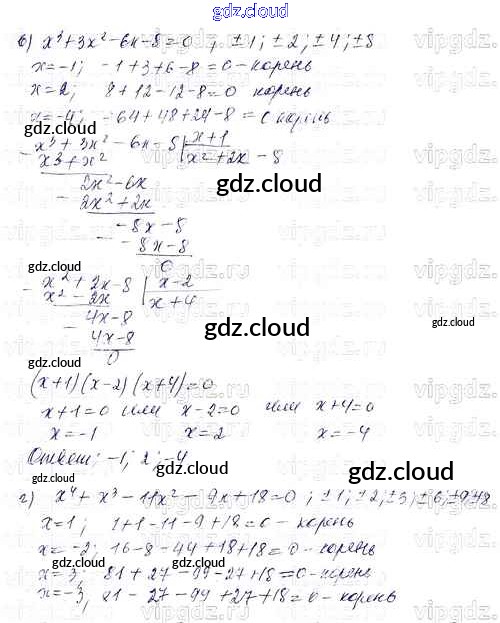 gdz.cloud
в) x³+3x²-6x-8=0 ; ±1; ±2; ±4; ±8
x=-1; -1+3+6-8=0-корень
x=2; 8+12-12-8=0 корень
x=-4; -64+48+24-8=0 корень
gdz.cloud
- x³+3x²-6x-8 | x+1
x³+x² | x²+2x-8
2x²-6x
- 2x²+2x
gdz.cloud
-8x-8
- -8x-8
0
gdz.cloud
gdz.cloud
- x²+2x-8 | x-2
x²-2x | x+4
4x-8
- 4x-8
0
gdz.cloud
gdz.cloud
(x+1)(x-2)(x+4)=0
x+1=0 или x-2=0 или x+4=0
x=-1 x=2 x=-4
Ответ: -1; 2; -4
gdz.cloud
gdz.cloud
г) x⁴+x³-11x²-9x+18=0 ; ±1; ±2; ±3; ±6; ±9
x=1; 1+1-11-9+18=0-корень
x=-2; 16-8-44+18+18=0-корень
x=3; 81+27-99-27+18=0-корень
x=-3, 81-27-99+27+18=0-корень
gdz.cloud
gdz.cloud